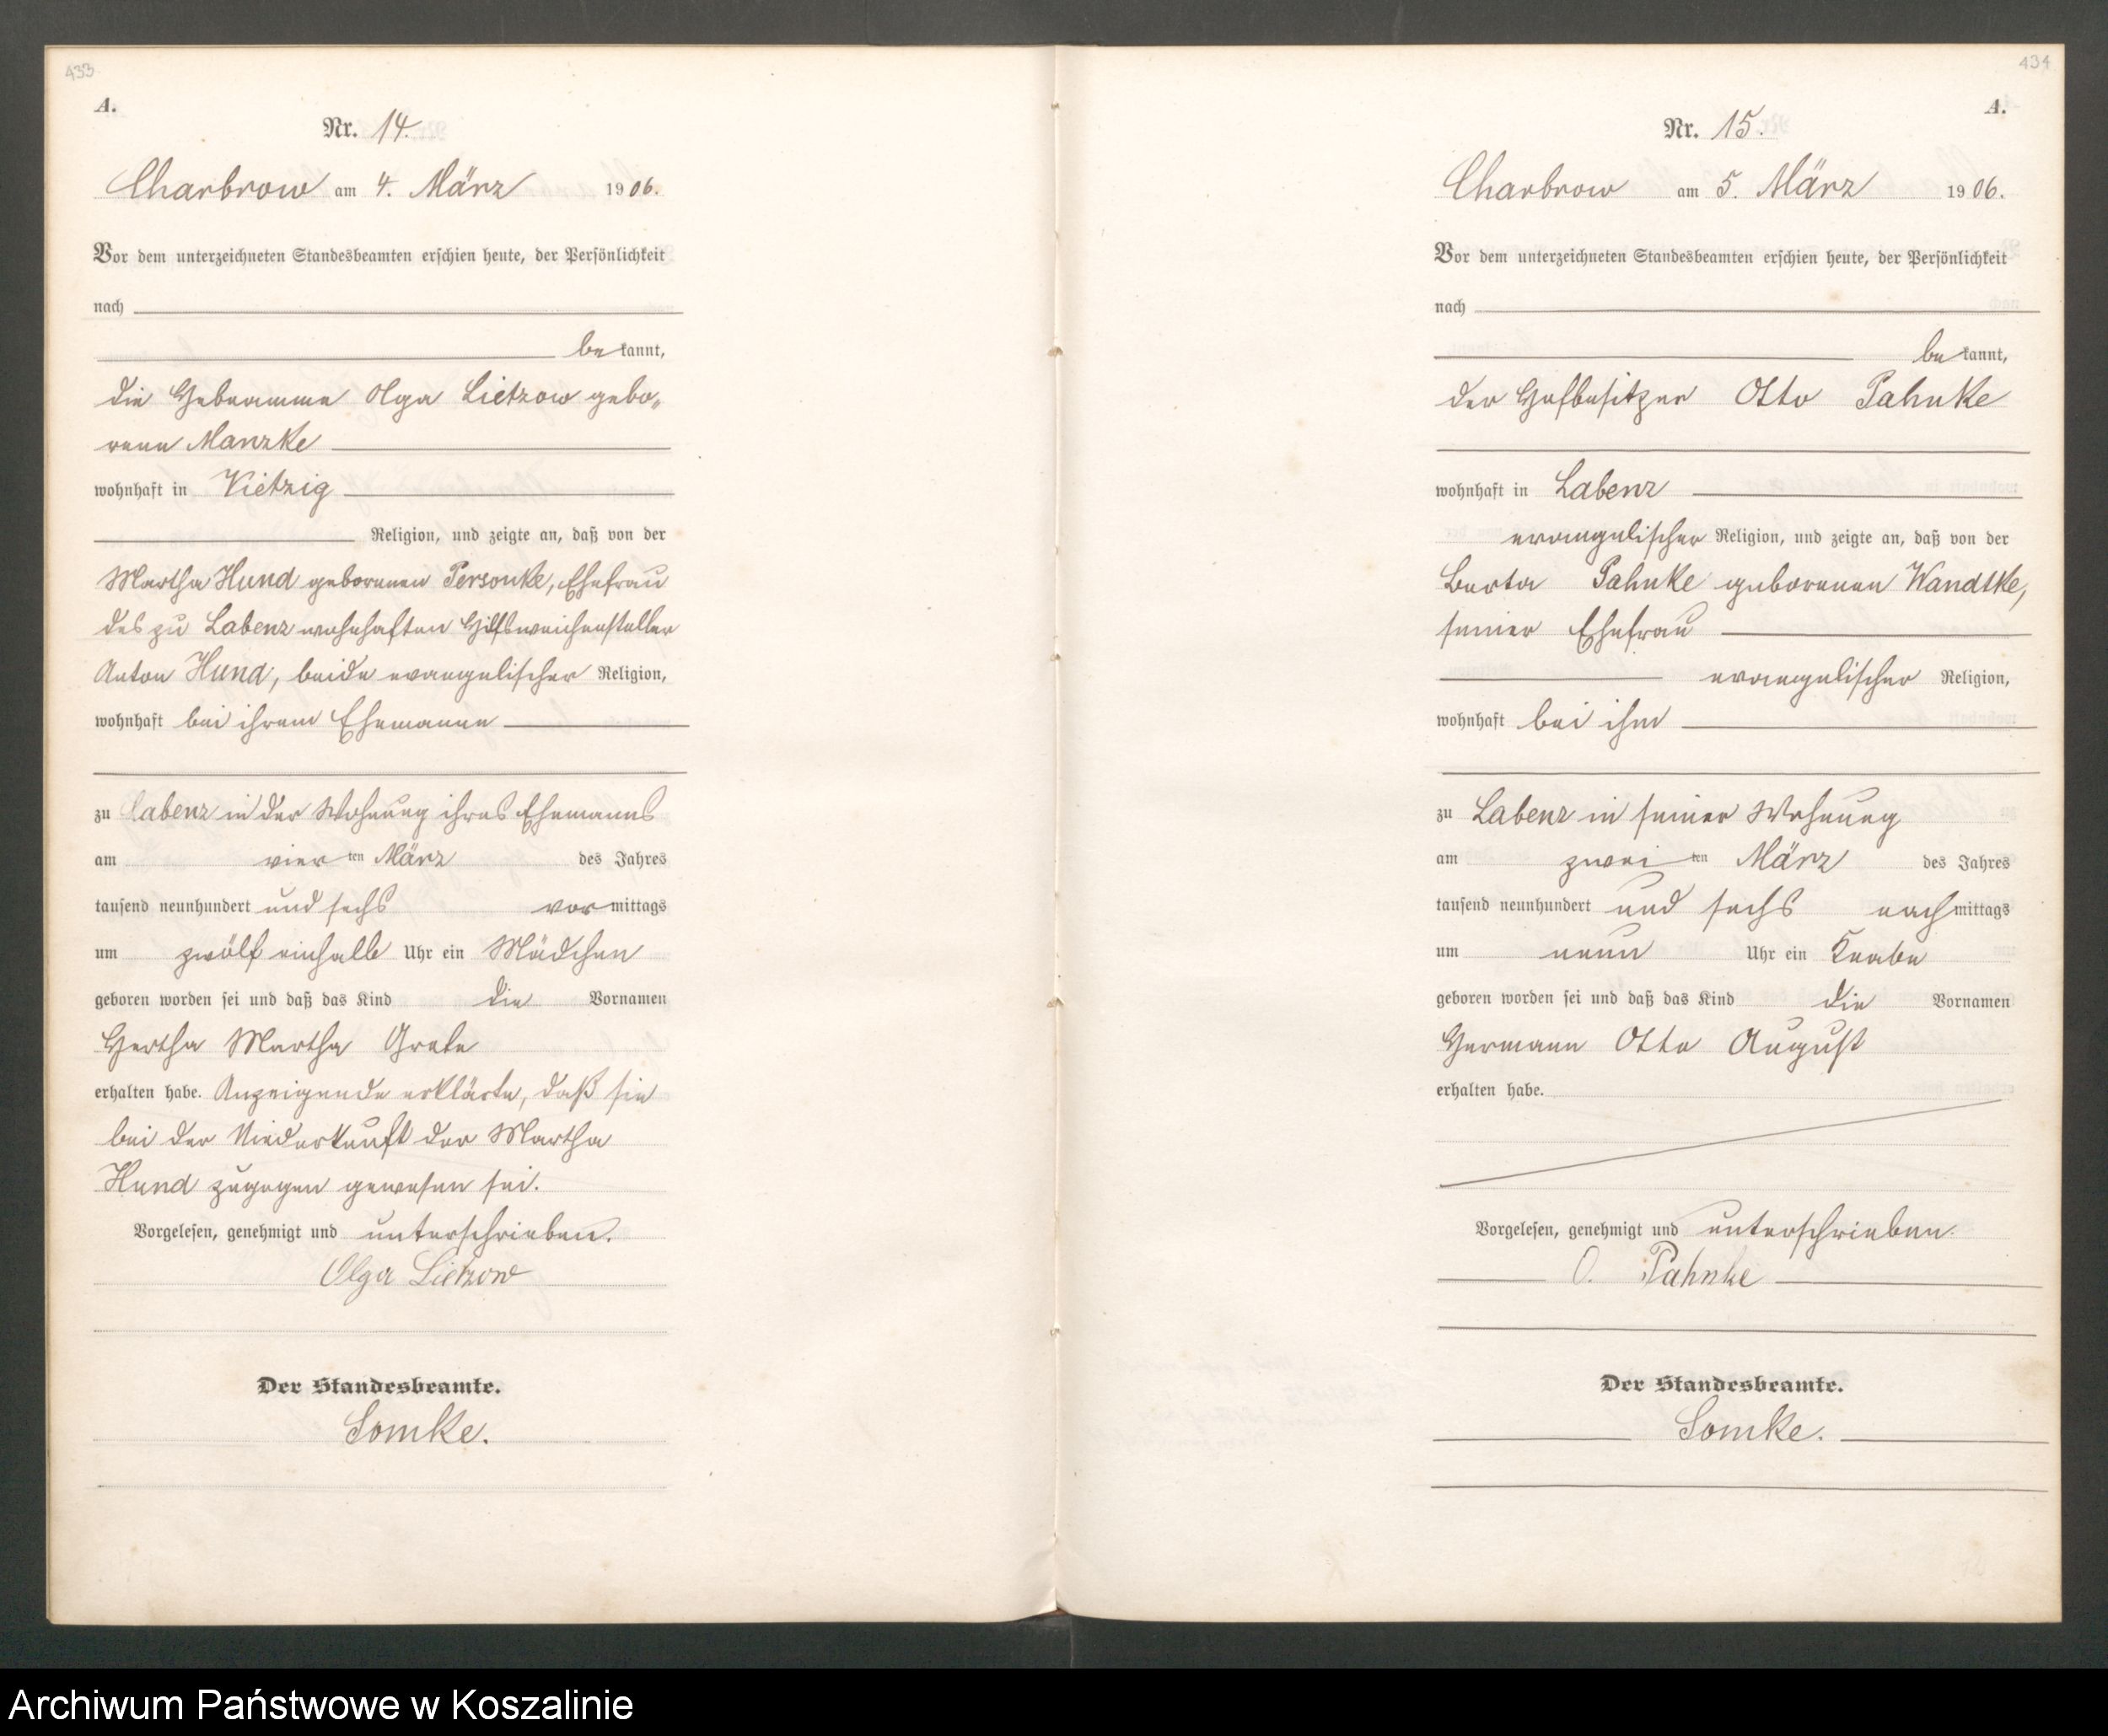 433
A.
Nr. 14.
Charbrow am 4. März 1906.
Vor dem unterzeichneten Standesbeamten erschien heute, der Persönlichkeit
nach
bekannt,
die Hebeamme Olga Lietzow gebo„
rene Manzke
wohnhaft in Vietzig
Religion, und zeigte an, daß von der
Martha Hund geborenen Personke, Ehefrau
des zu Labenz wohnhaften Hilfsweichensteller
Anton Hund, beide evangelischer Religion,
wohnhaft bei ihrem Ehemanne
zu Labenz in der Wohnung ihres Ehemanns
am vierten März des Jahres
tausend neunhundert und sechs vormittags
um zwölf einhalb Uhr ein Mädchen
geboren worden sei und daß das Kind die Vornamen
Hertha Martha Grete
erhalten habe. Anzeigende erklärte, daß sie
bei der Niederkunft der Martha
Hund zugegen gewesen sei.
Vorgelesen, genehmigt und unterschrieben.
Olga Lietzow
Der Standesbeamte.
Somke.
434
A.
Nr. 15.
Charbrow am 5. März 1906.
Vor dem unterzeichneten Standesbeamten erschien heute, der Persönlichkeit
nach
bekannt,
der Hofbesitzer Otto Pahnke
wohnhaft in Labenz
evangelischer Religion, und zeigte an, daß von der
Berta Pahnke geborenen Wandtke,
seiner Ehefrau
evangelischer Religion,
wohnhaft bei ihm
zu Labenz in seiner Wohnung
am zweiten März des Jahres
tausend neunhundert und sechs nachmittags
um neun Uhr ein Knabe
geboren worden sei und daß das Kind die Vornamen
Hermann Otto August
erhalten habe.
Vorgelesen, genehmigt und unterschrieben.
O. Pahnke
Der Standesbeamte.
Somke.
Archiwum Państwowe w Koszalinie